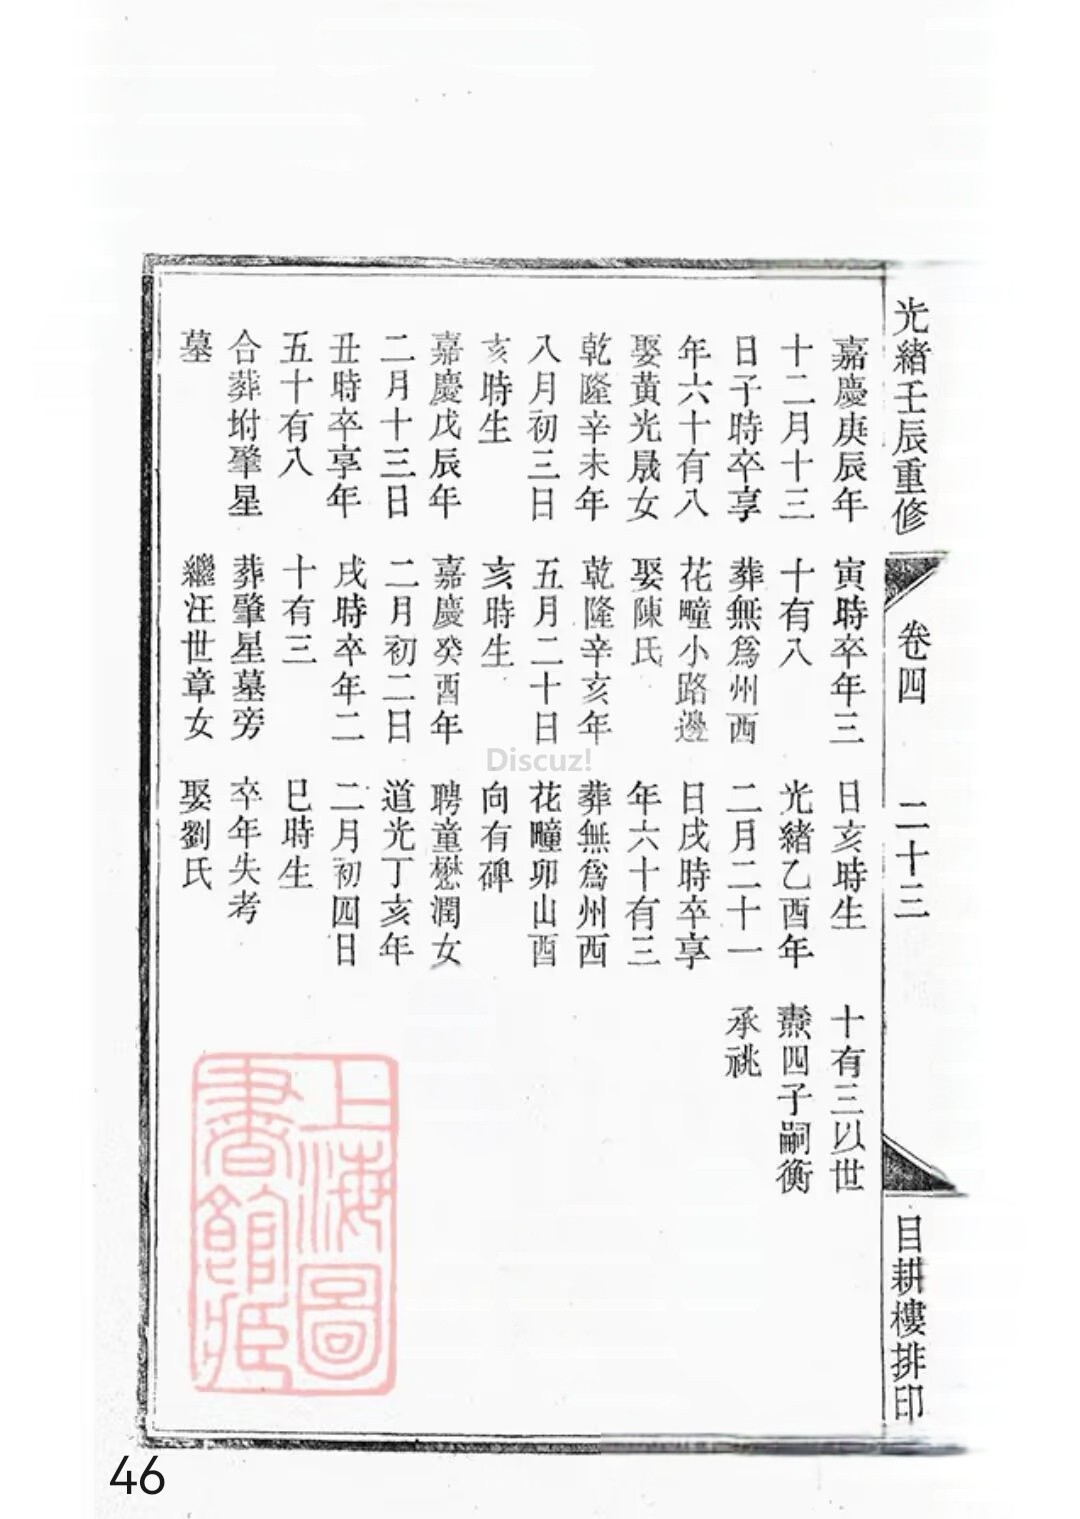 光緒壬辰重修
卷四
二十三
目耕樓排印
嘉慶庚辰年
十二月十三
日子時卒享
年六十有八
娶黃光晟女
乾隆辛未年
八月初三日
亥時生
嘉慶戊辰年
二月十三日
丑時卒享年
五十有八
合葬坿肇星
墓
寅時卒年三
十有八
葬無爲州西
花疃小路邊
娶陳氏
乾隆辛亥年
五月二十日
亥時生
嘉慶癸酉年
二月初二日
戌時卒年二
十有三
葬肇星墓旁
繼汪世章女
日亥時生
光緒乙酉年
二月二十一
日戌時卒享
年六十有三
葬無爲州西
花疃卯山酉
向有碑
聘童懋潤女
道光丁亥年
二月初四日
巳時生
卒年失考
娶劉氏
十有三以世
四子嗣衡
承祧
上海圖
書館藏
Discuz!
46